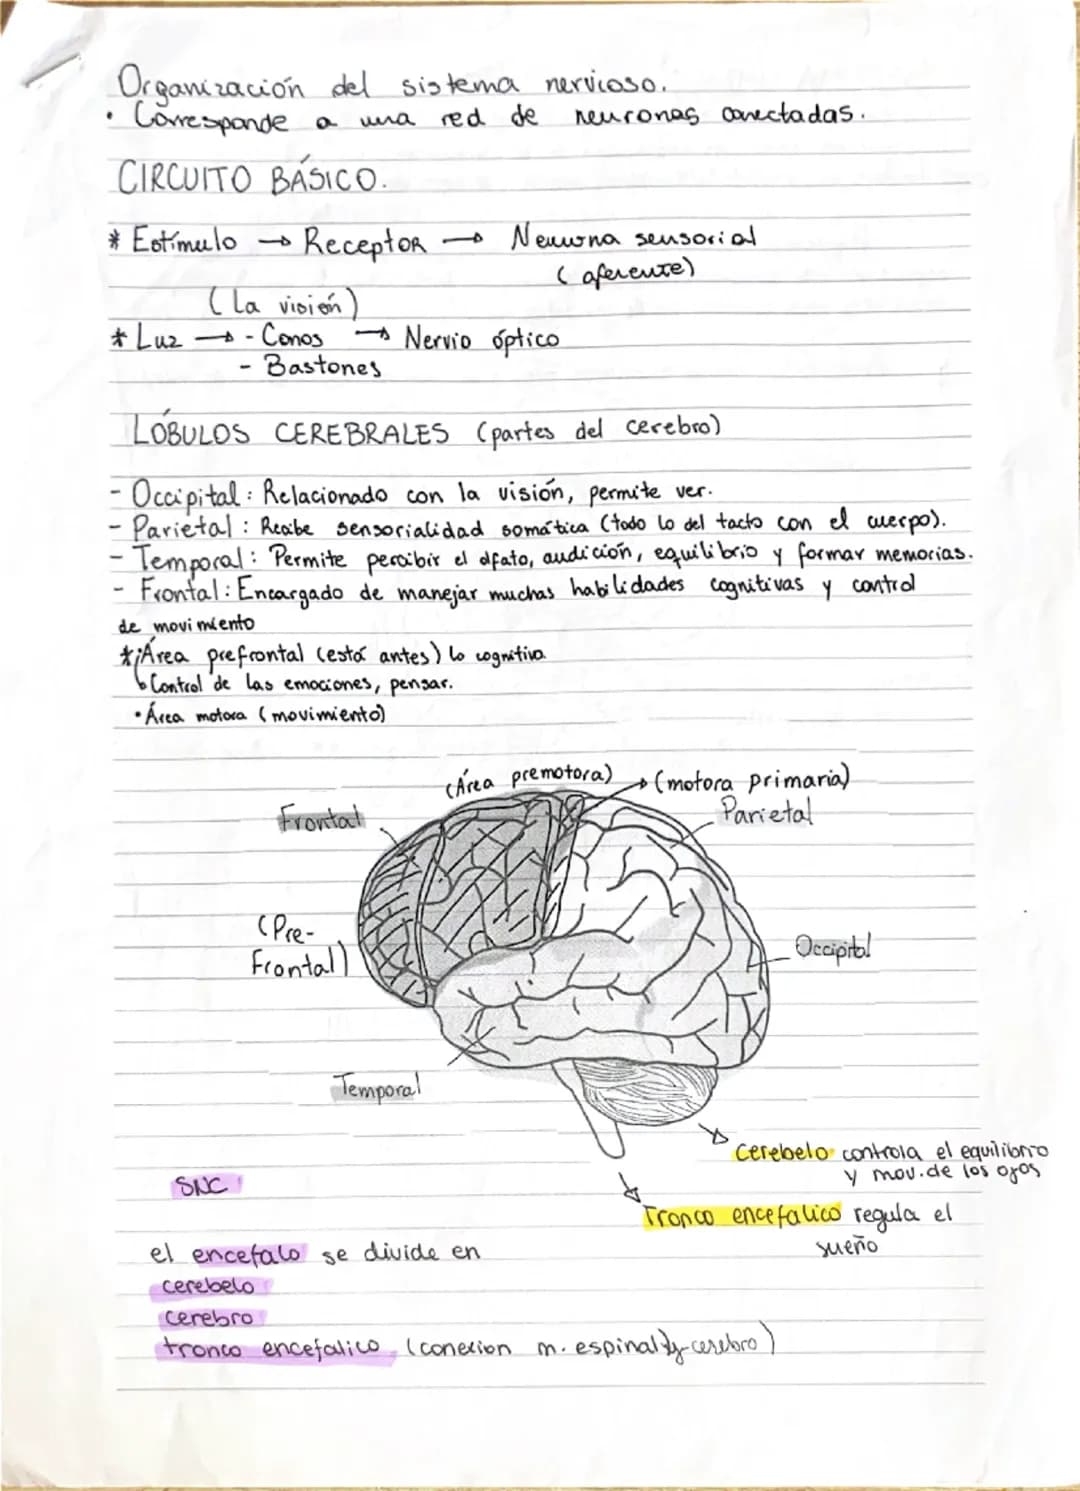 Organización del sistema nervioso.
• Corresponde a una red de neuronas conectadas.
CIRCUITO BÁSICO.
* Estímulo → Receptor → Neurona sensorial
(aferente)
(La visión)
* Luz → - Conos → Nervio óptico
- Bastones
LÓBULOS CEREBRALES (partes del cerebro)
- Occipital: Relacionado con la visión, permite ver.
- Parietal: Recibe sensorialidad somática (todo lo del tacto con el cuerpo).
- Temporal: Permite percibir el olfato, audición, equilibrio y formar memorias.
- Frontal: Encargado de manejar muchas habilidades cognitivas y control
de movimiento
*¡Área prefrontal (está antes) lo cognitivo.
↳ Control de las emociones, pensar.
• Área motora (movimiento)
(Área premotora) → (motora primaria)
Frontal
Parietal
(Pre-
Frontal)
Occipital
Temporal
cerebelo controla el equilibrio
y mov. de los ojos
SNC
Tronco encefalico regula el
sueño
el encefalo se divide en
cerebelo
cerebro
tronco encefalico (conexion m. espinal y cerebro)